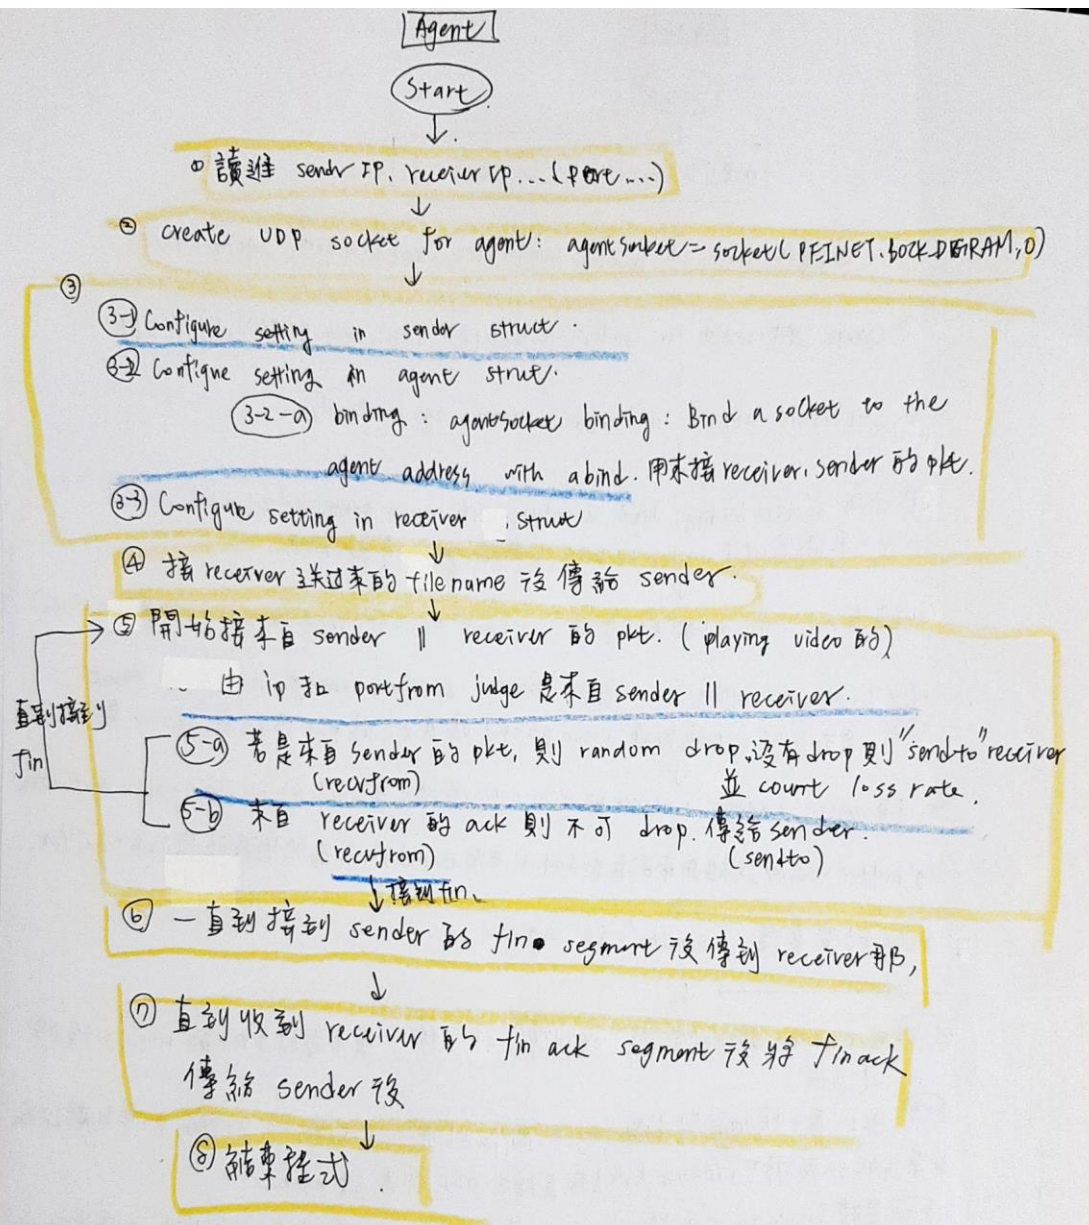 Agent
Start
① 讀進 sender IP, receiver IP...(port...)
② create UDP socket for agent: agentsocket = socket(PFINET, SOCK_DGRAM, 0)
③
3-1 Configure setting in sender struct.
3-2 Configue setting in agent strut.
3-2-a binding: agentsocket binding: Bind a socket to the
agent address with a bind. 用來接 receiver, sender 的 pkt.
3-3 Configure setting in receiver struct
④ 接 receiver 送过來的 filename 後傳給 sender.
⑤ 開始接來自 sender || receiver 的 pkt. (playing video 的)
由 ip 和 portfrom judge 是來自 sender || receiver.
直到接到
fin
5-a 若是來自 sender 的 pkt, 則 random drop, 沒有 drop 則 "sendto" receiver
(recvfrom) 並 count loss rate.
5-b 來自 receiver 的 ack 則不可 drop. 傳給 sender.
(recvfrom) (sendto)
接到 fin
⑥ 一直到接到 sender 的 fin segment 後傳到 receiver 那,
⑦ 直到收到 receiver 的 fin ack segment 後將 finack
傳給 sender 後
⑧ 結束程式.